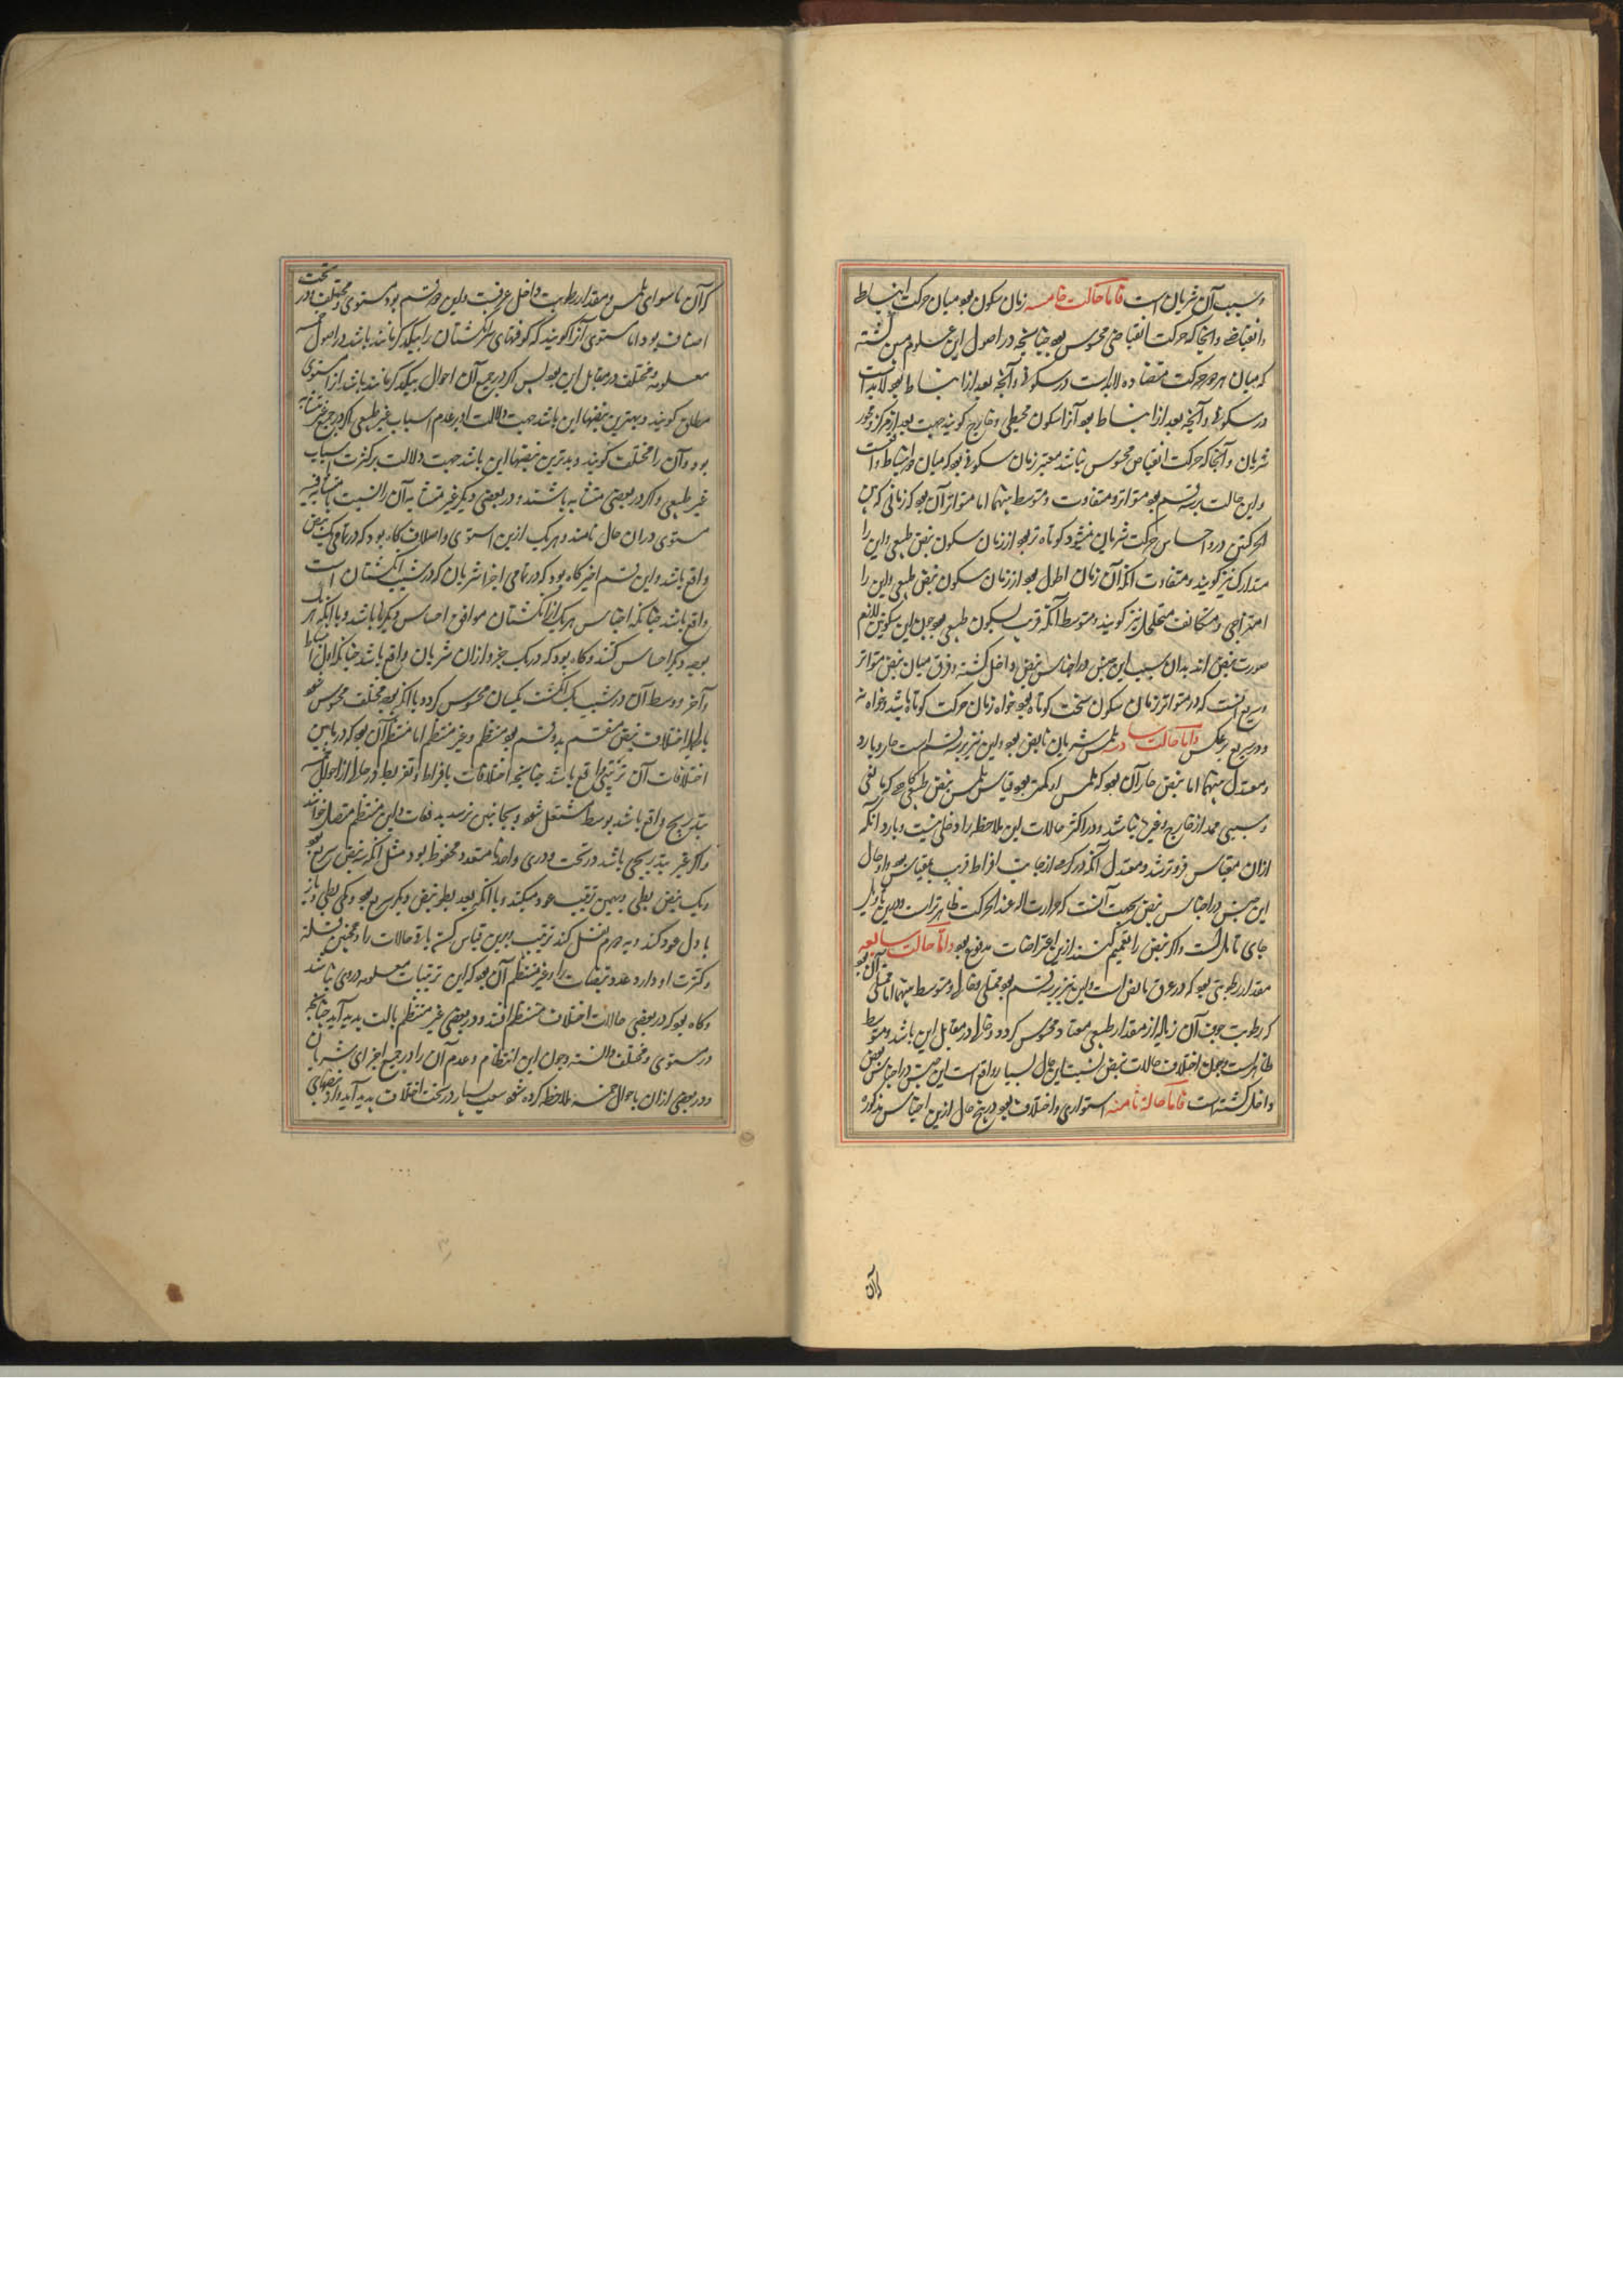 و سبب آن شریان است فاما حالت خامسه زمان سکون بود میان حرکت انبساط
و انقباض و آنجا که حرکت انقباضی محسوس بود چنانچه در اصول این علوم مبین گشته
که میان هر دو حرکت متضاده لابد است در سکونی و آنچه بعد از انبساط بود لابد است
در سکونی و آنچه بعد از انبساط بود آنرا سکون محیطی و خارج کویند جهت بعد از مرکز و محور
شریان و آنجا که حرکت انقباض محسوس نباشد معتبر زمان سکونی بود که میان دو انبساط واقع است
و این حالت بر سه قسم بود متواتر و متفاوت و متوسط بینهما اما متواتر آن بود که زمانی که
درو احساس حرکت شریان نمیشود کوتاه تر بود از زمان سکون نبض طبعی و این را
متدارک نیز کویند و متفاوت آنکه آن زمان اطول بود از زمان سکون نبض طبعی و این را
متخلخل نیز کویند و متوسط آنکه قریب بسکون طبعی بود چون این سکونین لازم
صورت نبض اند بدان سبب این جنس در اجناس نبض داخل کشته و فرق میان نبض متواتر
و سریع آنست که در متواتر زمان سکون سخت کوتاه بود خواه زمان حرکت کوتاه باشد و خواه نه
و در سریع بر عکس و اما حالت سادسه ملمس شریان نابض بود و این نیز بر سه قسم است حار و بارد
و معتدل بینهما اما نبض حار آن بود که ملمس او کرمتر بود بقیاس ملمس نبض طبعی کاهی که مانعی
و سببی ممد از خارج و غیره نباشد و در اکثر حالات این ملاحظه را دخلی نیست و بارد آنکه
ازان مقیاس فروتر شد و معتدل آنکه در کرمی از جانب افراط قریب بمقیاس بود و ادخال
این جنس در اجناس نبض بجهت آنست که حرارت اله عند الحرکت ظاهر تر است و درین تاویل
جای تامل است و اکر نبض را تعمیم کنند ازین اعتراضات مدفوع بود و اما حالت سابعه
مقدار رطوبتی بود که در عرق نابض است و این نیز بر سه قسم بود ممتلی و خالی و متوسط بینهما اما ممتلی آن بود
که رطوبت جوف آن زیاده از مقدار طبعی معتاد محسوس کردد و خالی در مقابل این باشد و متوسط
ظاهر است و چون اختلاف حالات نبض نسبت این حال بسیار واقع است این جنس در اجناس نبض
داخل کشته است فاما حالة ثامنه استواری و اختلاف بود در پنج حال ازین اجناس مذکوره
که آن ماسوای ملمس و مقدار رطوبت داخل عرقست و این دو قسم بود مستوی و مختلف و در تحت
اصناف بود اما مستوی آنرا کویند که کوفتهای سر انکشتان را بیکدکر مانند باشد در احوال خمسه
معلومه و مختلف در مقابل این بود پس اکر در جمیع آن احوال بیکدکر مانند باشد آنرا مستوی
مطلق کویند و بهترین نبضها این باشد جهت دلالت او بر عدم اسباب غیر طبیعی و اکر در جمیع غیر متشابه
بود آن را مختلف کویند و بدترین نبضها این باشد جهت دلالت بر کثرت اسباب
غیر طبیعی و اکر در بعضی متشابه باشند و در بعضی دیکر غیر متشابه آن را نسبت با متشابه فیه
مستوی دران حال نامند و هر یک ازین استوی و اختلاف کاه بود که در تمامی یک نبض
واقع باشد و این قسم اخیر کاه بود که در تمامی اجزا شریان که در شیب انکشتان است
واقع باشد چنانکه احساس هر یک از انکشتان موافق احساس دیکرها باشد و یا آنکه هر یک
بوجه دیکر احساس کنند و کاه بود که در یک جزو ازان شریان واقع باشد چنانکه اول انبساط
و آخر و وسط آن در شیب یک انکشت یکسان محسوس کردد یا آنکه بوجه مختلف محسوس شود
بالجمله اختلاف نبض منقسم بدو قسم بود منتظم و غیر منتظم اما منتظم آن بود که در مابین
اختلافات آن ترتیبی واقع باشد چنانچه اختلافات بافراط و تفریط در حال از احوال خمسه
بتدریج واقع باشد بوسط مشتعل شود و بجانبین نرسد بدفعات و این منتظم متصل خوانند
و اکر غیر بتدریجی باشد در تحت دوری واحد یا متعدد محفوظ بود مثل آنکه سه نبض سریع بود
و یک نبض بطی و بهمین ترتیب عود میکند و یا آنکه بعد بطو نبض دیکر سریع بود و یکی بطی و باز
باول عود کند
و کثرت ادوار و عدد نبضات را و غیر منتظم آن بود که این ترتیبات معلومه دروی نباشد
و کاه بود که در بعضی حالات اختلاف منتظم افتد و در بعضی غیر منتظم حالت پدید آید چنانکه
در مستوی و مختلف دانسته و چون این انتظام و عدم آن را در جمیع اجزای شریان
و در بعضی ازان باحوال خمسه ملاحظه کرده شود شعب بسیار در تحت اختلاف پدید آید و از نبضهای